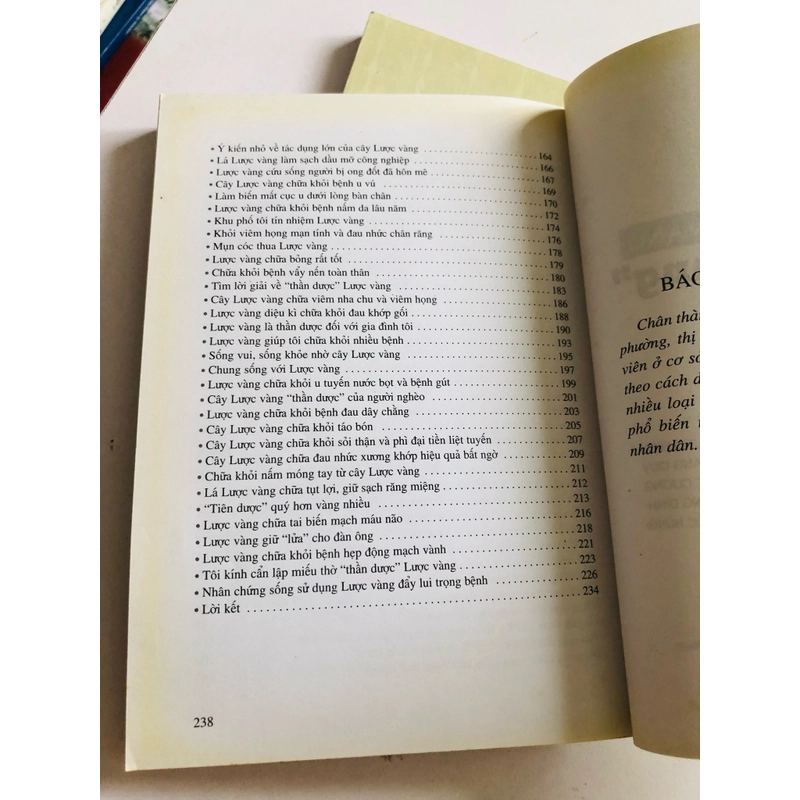 • Ý kiến nhỏ về tác dụng lớn của cây Lược vàng ........ 164
• Lá Lược vàng làm sạch dầu mỡ công nghiệp ........ 166
• Lược vàng cứu sống người bị ong đốt đã hôn mê ........ 167
• Cây Lược vàng chữa khỏi bệnh u vú ........ 169
• Làm biến mất cục u dưới lòng bàn chân ........ 170
• Lược vàng chữa khỏi bệnh nấm da lâu năm ........ 172
• Khu phố tôi tín nhiệm Lược vàng ........ 174
• Khỏi viêm họng mạn tính và đau nhức chân răng ........ 176
• Mụn cóc thua Lược vàng ........ 178
• Lược vàng chữa bỏng rất tốt ........ 179
• Chữa khỏi bệnh vẩy nến toàn thân ........ 180
• Tìm lời giải về “thần dược” Lược vàng ........ 183
• Cây Lược vàng chữa viêm nha chu và viêm họng ........ 186
• Lược vàng diệu kì chữa khỏi đau khớp gối ........ 188
• Lược vàng là thần dược đối với gia đình tôi ........ 190
• Lược vàng giúp tôi chữa khỏi nhiều bệnh ........ 193
• Sống vui, sống khỏe nhờ cây Lược vàng ........ 195
• Chung sống với Lược vàng ........ 197
• Lược vàng chữa khỏi u tuyến nước bọt và bệnh gút ........ 199
• Cây Lược vàng “thần dược” của người nghèo ........ 201
• Lược vàng chữa khỏi bệnh đau dây chằng ........ 203
• Cây Lược vàng chữa khỏi táo bón ........ 205
• Cây Lược vàng chữa khỏi sỏi thận và phì đại tiền liệt tuyến ........ 207
• Cây Lược vàng chữa đau nhức xương khớp hiệu quả bất ngờ ........ 209
• Chữa khỏi nấm móng tay từ cây Lược vàng ........ 211
• Lá Lược vàng chữa tụt lợi, giữ sạch răng miệng ........ 212
• “Tiên dược” quý hơn vàng nhiều ........ 213
• Lược vàng chữa tai biến mạch máu não ........ 216
• Lược vàng giữ “lửa” cho đàn ông ........ 218
• Lược vàng chữa khỏi bệnh hẹp động mạch vành ........ 221
• Tôi kính cẩn lập miếu thờ “thần dược” Lược vàng ........ 223
• Nhân chứng sống sử dụng Lược vàng đẩy lui trọng bệnh ........ 226
• Lời kết ........ 234
238
BÁC
Chân thà
phường, thị
viên ở cơ sơ
theo cách d
nhiều loại
phổ biến
nhân dân.